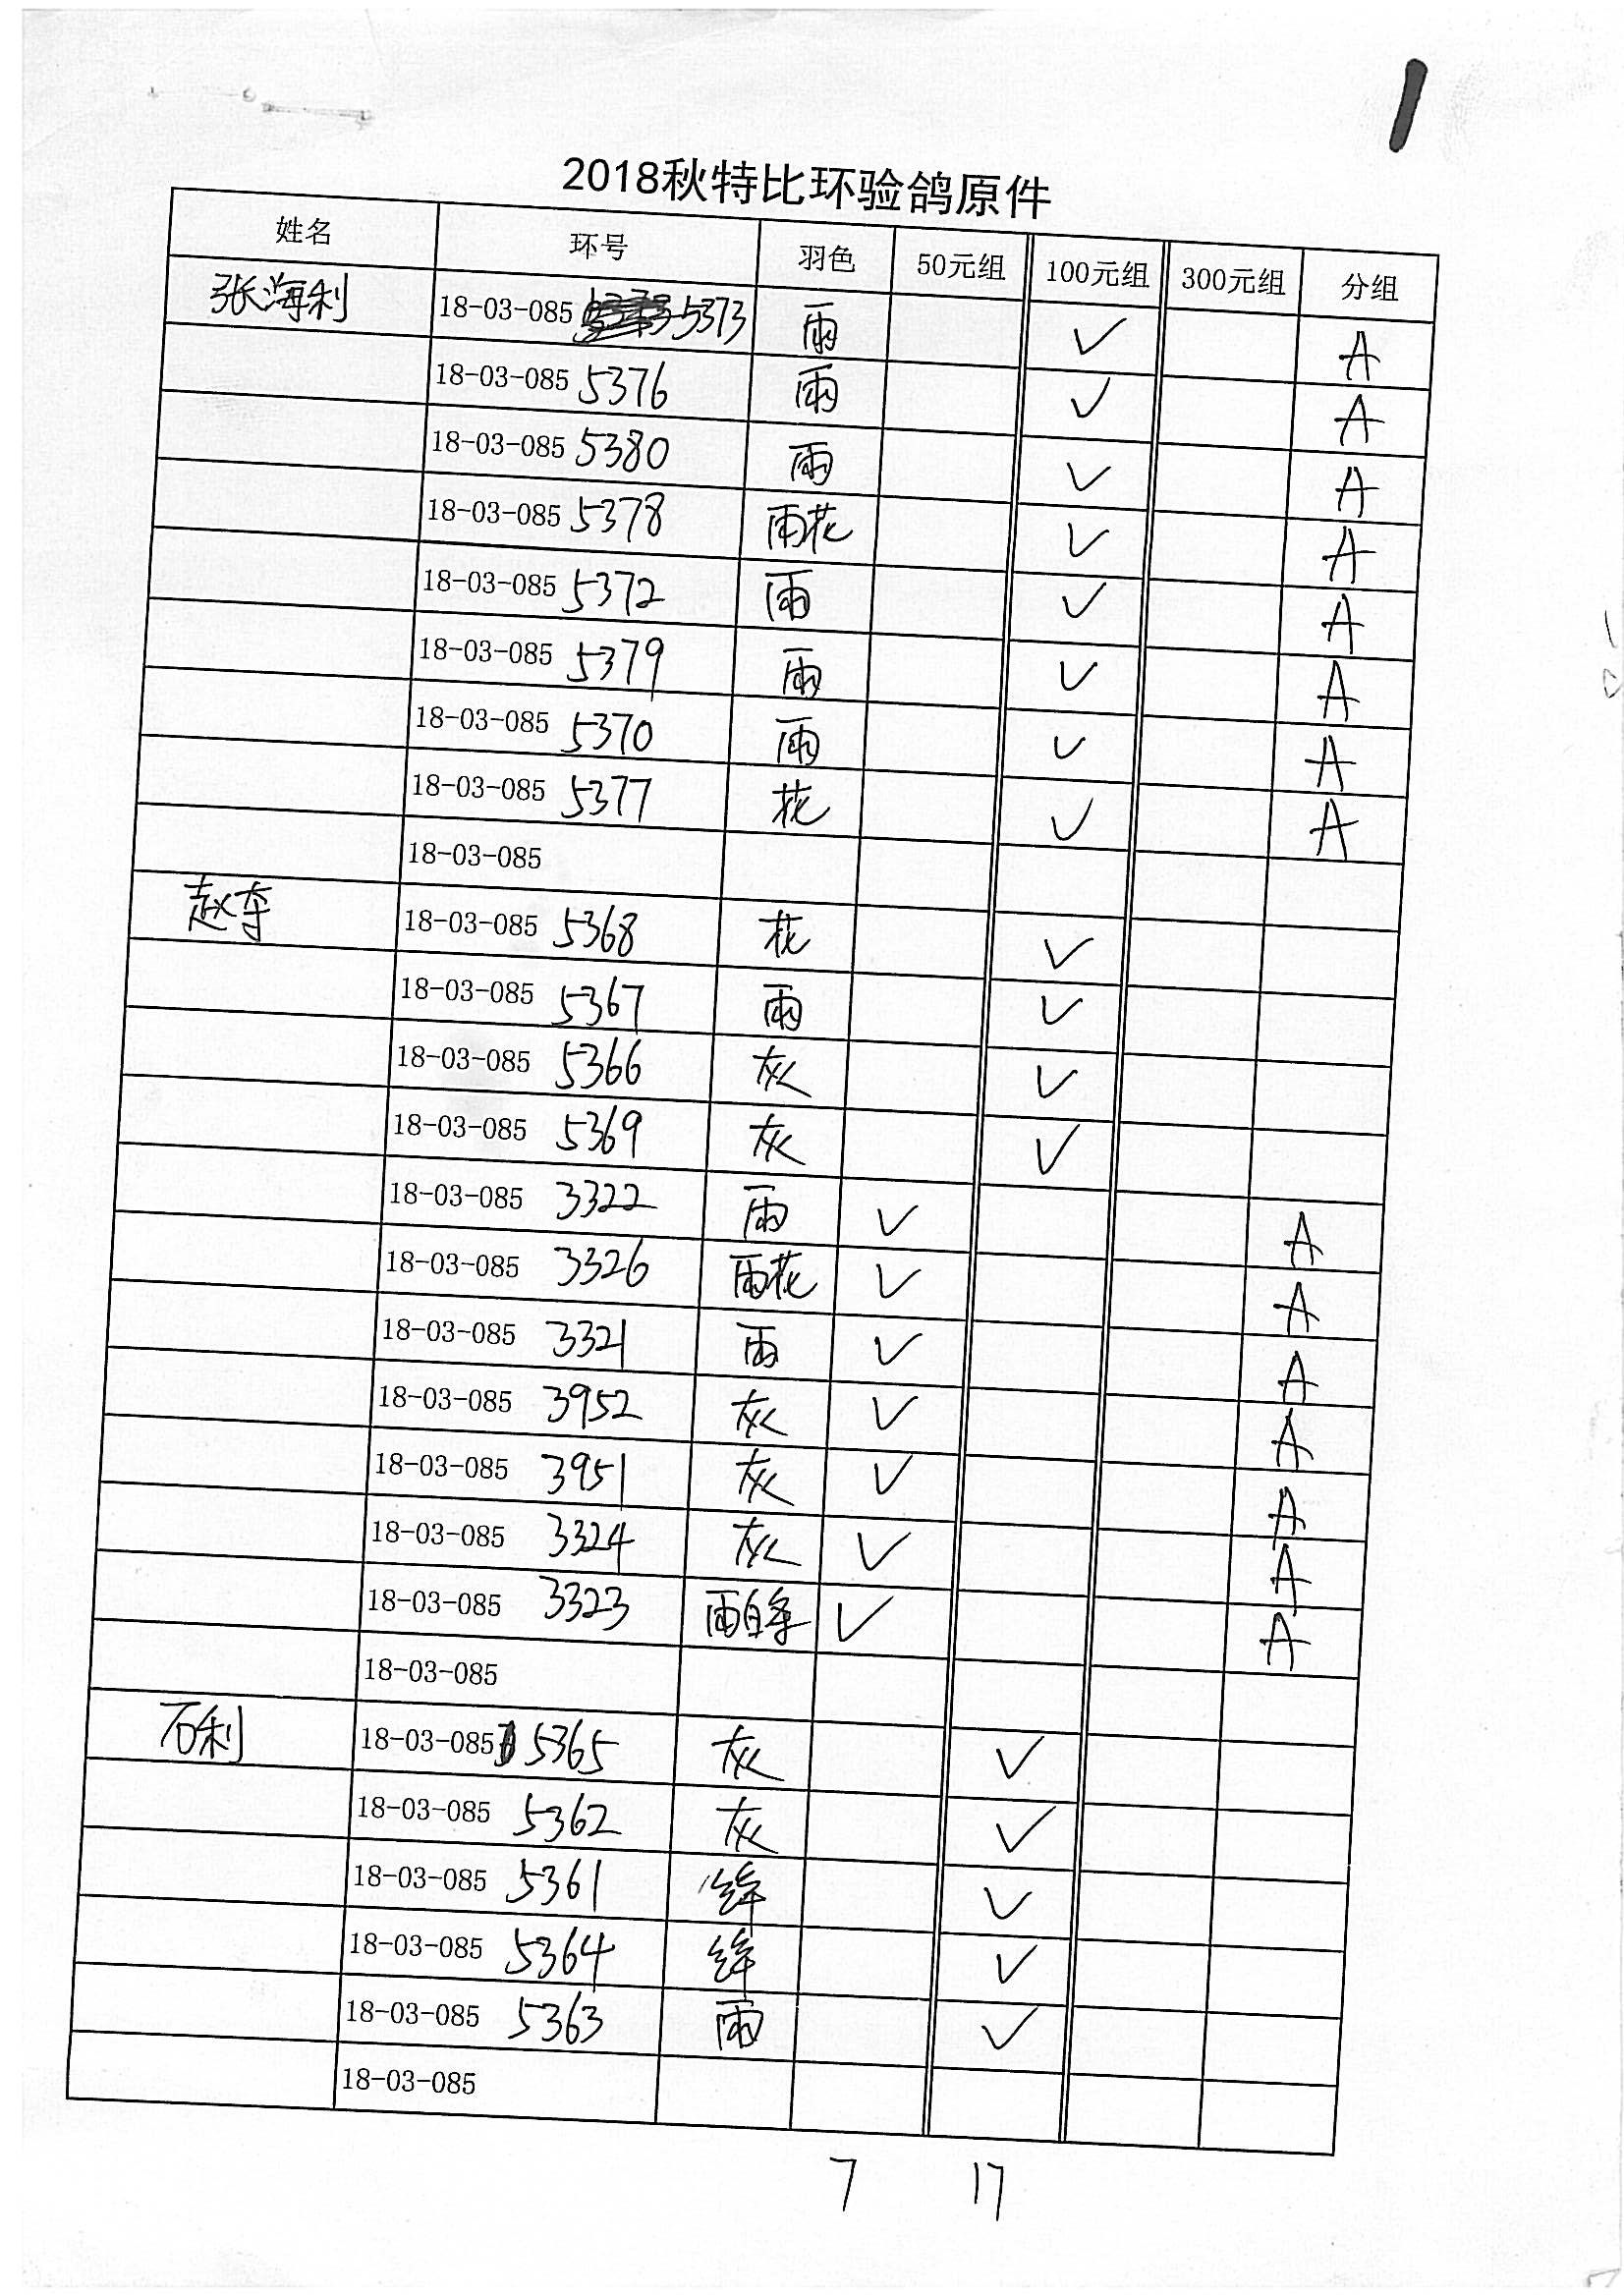 1
2018秋特比环验鸽原件
姓名 环号 羽色 50元组 100元组 300元组 分组
张海利 18-03-085 5373 雨 ✓ A
18-03-085 5376 雨 ✓ A
18-03-085 5380 雨 ✓ A
18-03-085 5378 雨花 ✓ A
18-03-085 5372 雨 ✓ A
18-03-085 5379 雨 ✓ A
18-03-085 5370 雨 ✓ A
18-03-085 5377 花 ✓ A
18-03-085
赵李 18-03-085 5368 花 ✓
18-03-085 5367 雨 ✓
18-03-085 5366 灰 ✓
18-03-085 5369 灰 ✓
18-03-085 3322 雨 ✓ A
18-03-085 3326 雨花 ✓ A
18-03-085 3321 雨 ✓ A
18-03-085 3952 灰 ✓ A
18-03-085 3951 灰 ✓ A
18-03-085 3324 灰 ✓ A
18-03-085 3323 雨白条 ✓ A
18-03-085
石利 18-03-085 5365 灰 ✓
18-03-085 5362 灰 ✓
18-03-085 5361 绛 ✓
18-03-085 5364 绛 ✓
18-03-085 5363 雨 ✓
18-03-085
7 17